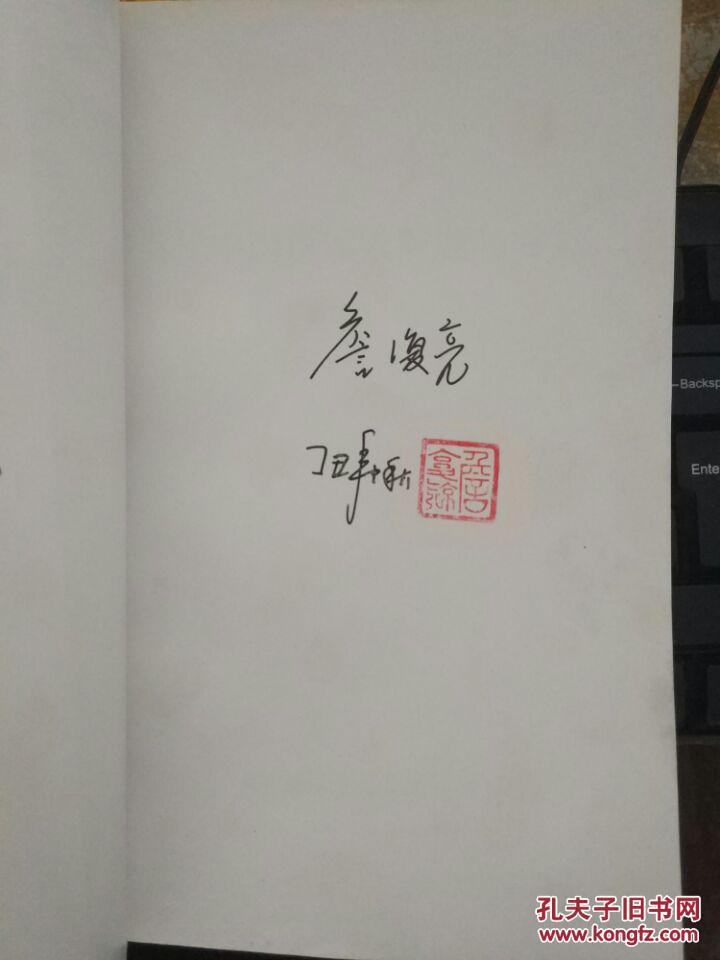 詹復亮
丁丑年中秋
Backsp
Ente
孔夫子旧书网
www.kongfz.com